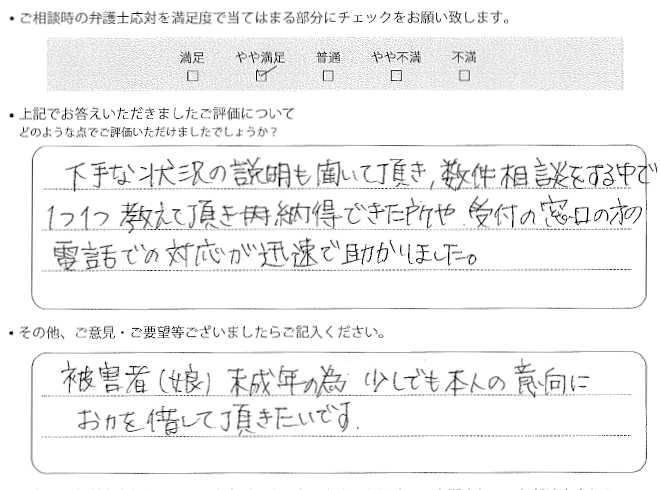 • ご相談時の弁護士応対を満足度で当てはまる部分にチェックをお願い致します。
満足 やや満足 普通 やや不満 不満
□ ☑ □ □ □
• 上記でお答えいただきましたご評価について
どのような点でご評価いただけましたでしょうか？
下手な状況の説明も聞いて頂き、数件相談をする中で
1つ1つ教えて頂き再納得できた所や、受付の窓口の方の
電話での対応が迅速で助かりました。
• その他、ご意見・ご要望等ございましたらご記入ください。
被害者（娘）未成年の為、少しでも本人の意向に
お力を借して頂きたいです。